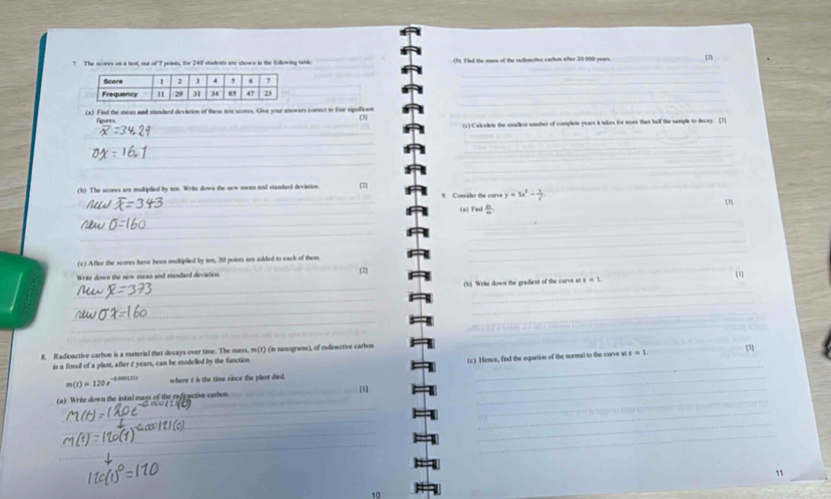 7. The scores on a test, out of 7 points, for 240 students are shown in the following table.
Score 1 2 3 4 5 6 7
Frequency 11 29 31 34 65 47 23
(a) Find the mean and standard deviation of these test scores. Give your answers correct to four significant figures. [3]
x̄ = 34.29
σx = 16.1
(b) The scores are multiplied by ten. Write down the new mean and standard deviation. [2]
new x̄ = 343
new σ = 160
(c) After the scores have been multiplied by ten, 30 points are added to each of them.
Write down the new mean and standard deviation. [2]
new x̄ = 373
new σx = 160
8. Radioactive carbon is a material that decays over time. The mass, m(t) (in nanograms), of radioactive carbon
in a fossil of a plant, after t years, can be modelled by the function
m(t) = 120 e^-0.000121t where t is the time since the plant died.
(a) Write down the initial mass of the radioactive carbon. [1]
M(t) = 120e^-0.000121(0)
↓
M(t) = 120(1)^-0.000121(0)
↓
120(1)^0 = 120
10
(b) Find the mass of the radioactive carbon after 20 000 years. [2]
(c) Calculate the smallest number of complete years it takes for more than half the sample to decay. [3]
9. Consider the curve y =
(a) Find dy/dx. [3]
(b) Write down the gradient of the curve at x = 1. [1]
(c) Hence, find the equation of the normal to the curve at x = 1. [3]
11